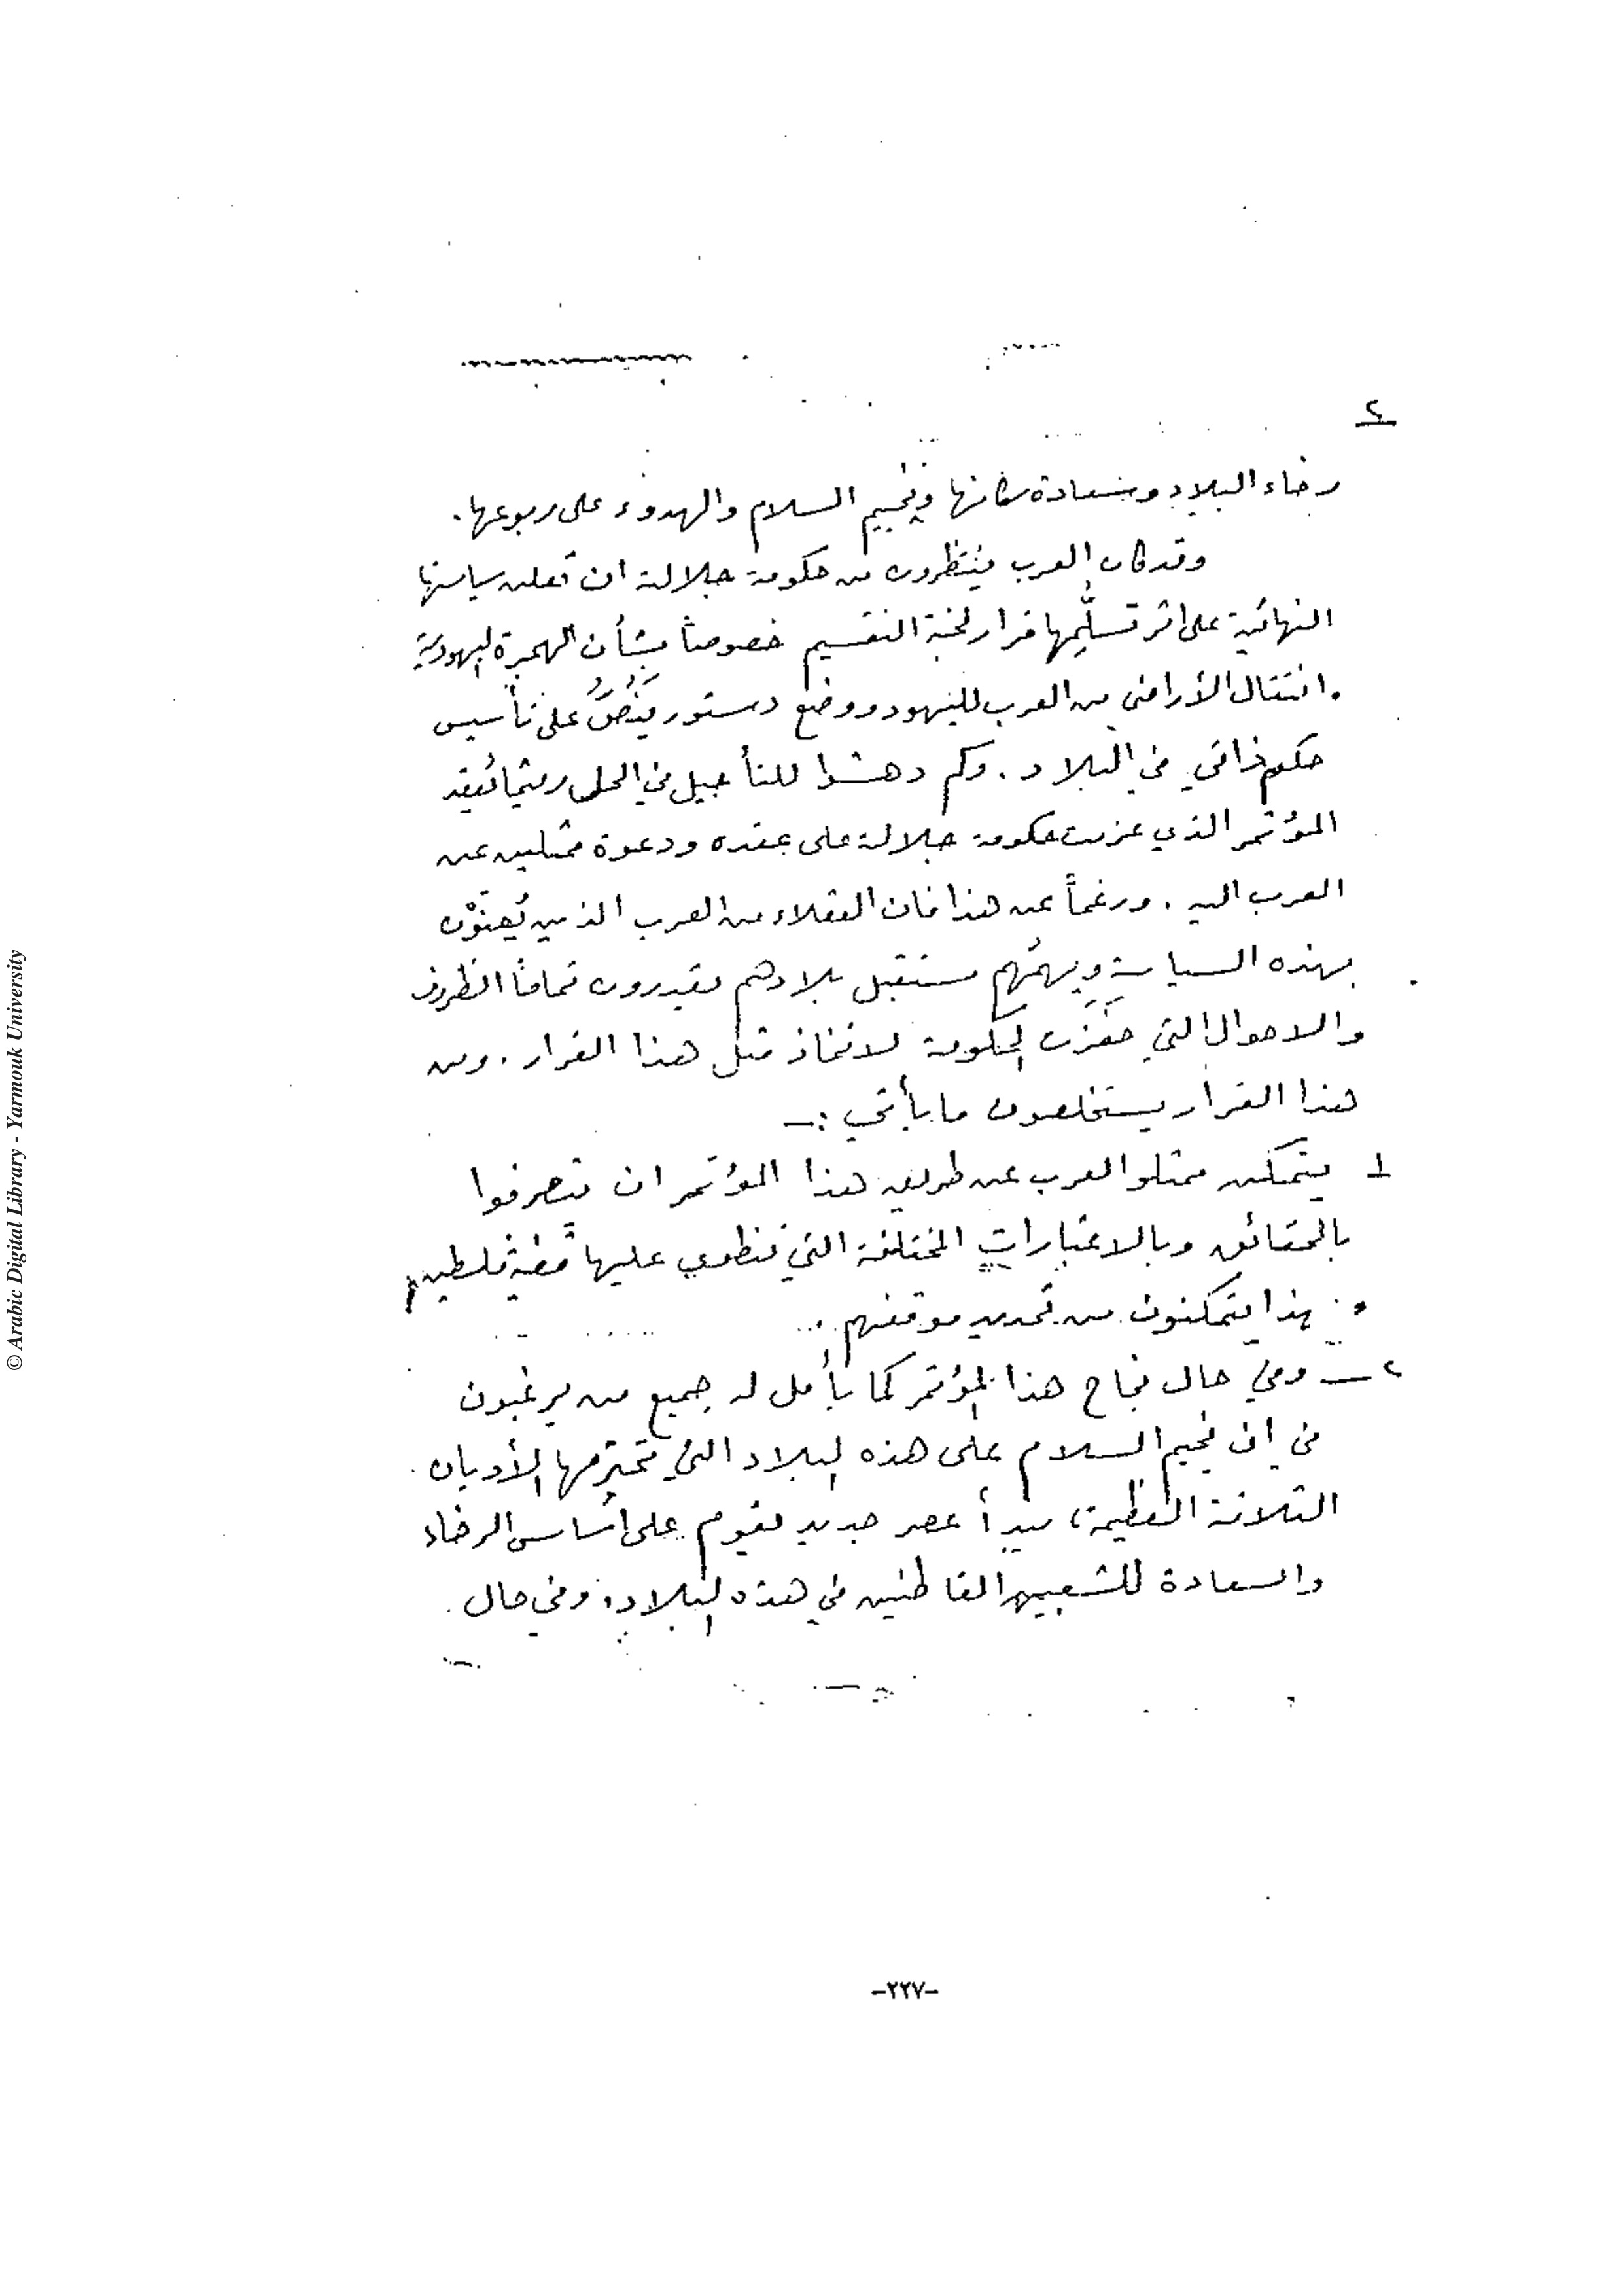 ٢
رخاء البلاد وسعادة سكانها ويخيم السلام والهدوء على ربوعها.
وقد كان العرب ينتظرون من حكومة جلالته ان تعلن سياستها
النهائية على اثر تسلُّمِها قرار لجنة التقسيم خصوصاً بشأن الهجرة اليهودية
وانتقال الأراضي من العرب لليهود ووضع دستور يَنُصُّ على تأسيس
حكم ذاتي في البلاد. وكم دهشوا للتأجيل في الحل ريثما يُعقد
المؤتمر الذي عزمت حكومة جلالته على عقده ودعوة ممثلين عن
العرب اليه. ورغماً عن هذا فان العقلاء من العرب الذين يُعنَوْن
بهذه السياسة ويهمُّهم مستقبل بلادهم يقدرون تماماً الظروف
والاحوال التي حفَزَت الحكومة لاتخاذ مثل هذا القرار. ومن
هذا القرار يستخلصون ما يأتي :—
١ يتمكن ممثلو العرب عن طريق هذا المؤتمر ان يتعرفوا
بالحقائق وبالاعتبارات المختلفة التي تنطوي عليها قضية فلسطين
و بهذا يتمكنون من تحديد موقفهم.
٢ — وفي حال نجاح هذا المؤتمر كما يأمل له جميع من يرغبون
في ان يخيم السلام على هذه البلاد التي تحترمها الأديان
الثلاثة العظيمة، يبدأ عصر جديد يقوم على أساس الرخاء
والسعادة للشعبين القاطنين في هذه البلاد. وفي حال
-٢٢٧-
© Arabic Digital Library - Yarmouk University